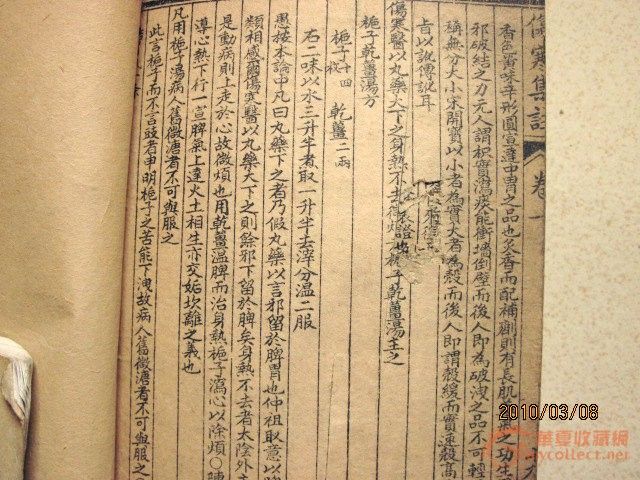 傷寒集註 卷一
香色黃味辛形圓宣達中胃之品也炙香而配補劑則有長肌氣之功生
邪破結之力元人謂枳實瀉痰能衝墻倒壁而後人即為破洩之品不可輕
稱無分大小宋開寶以小者為實大者為殼而後人即謂殼緩而實速殼高
皆以訛傳訛耳
傷寒醫以丸藥大下之身熱不去微煩梔子乾薑湯主之
梔子乾薑湯方
梔子十四枚 乾薑二兩
右二味以水三升半煮取一升半去滓分溫二服
愚按本論中凡曰丸藥下之者乃假丸藥以言邪留於脾胃也仲祖取意以
類相感爾傷寒醫以丸藥大下之則餘邪下留於脾矣身熱不去者太陰外主
是動病則上走於心故微煩也用乾薑溫脾而治身熱梔子瀉心以除煩○陳
導心熱下行一宣脾氣上達火土相生亦交姤坎離之義也
凡用梔子湯病人舊微溏者不可與服之
此言梔子而不言豉者申明梔子之苦能下洩故病人舊微溏者不可與服之
2010/03/08
華夏收藏網
mycollect.net